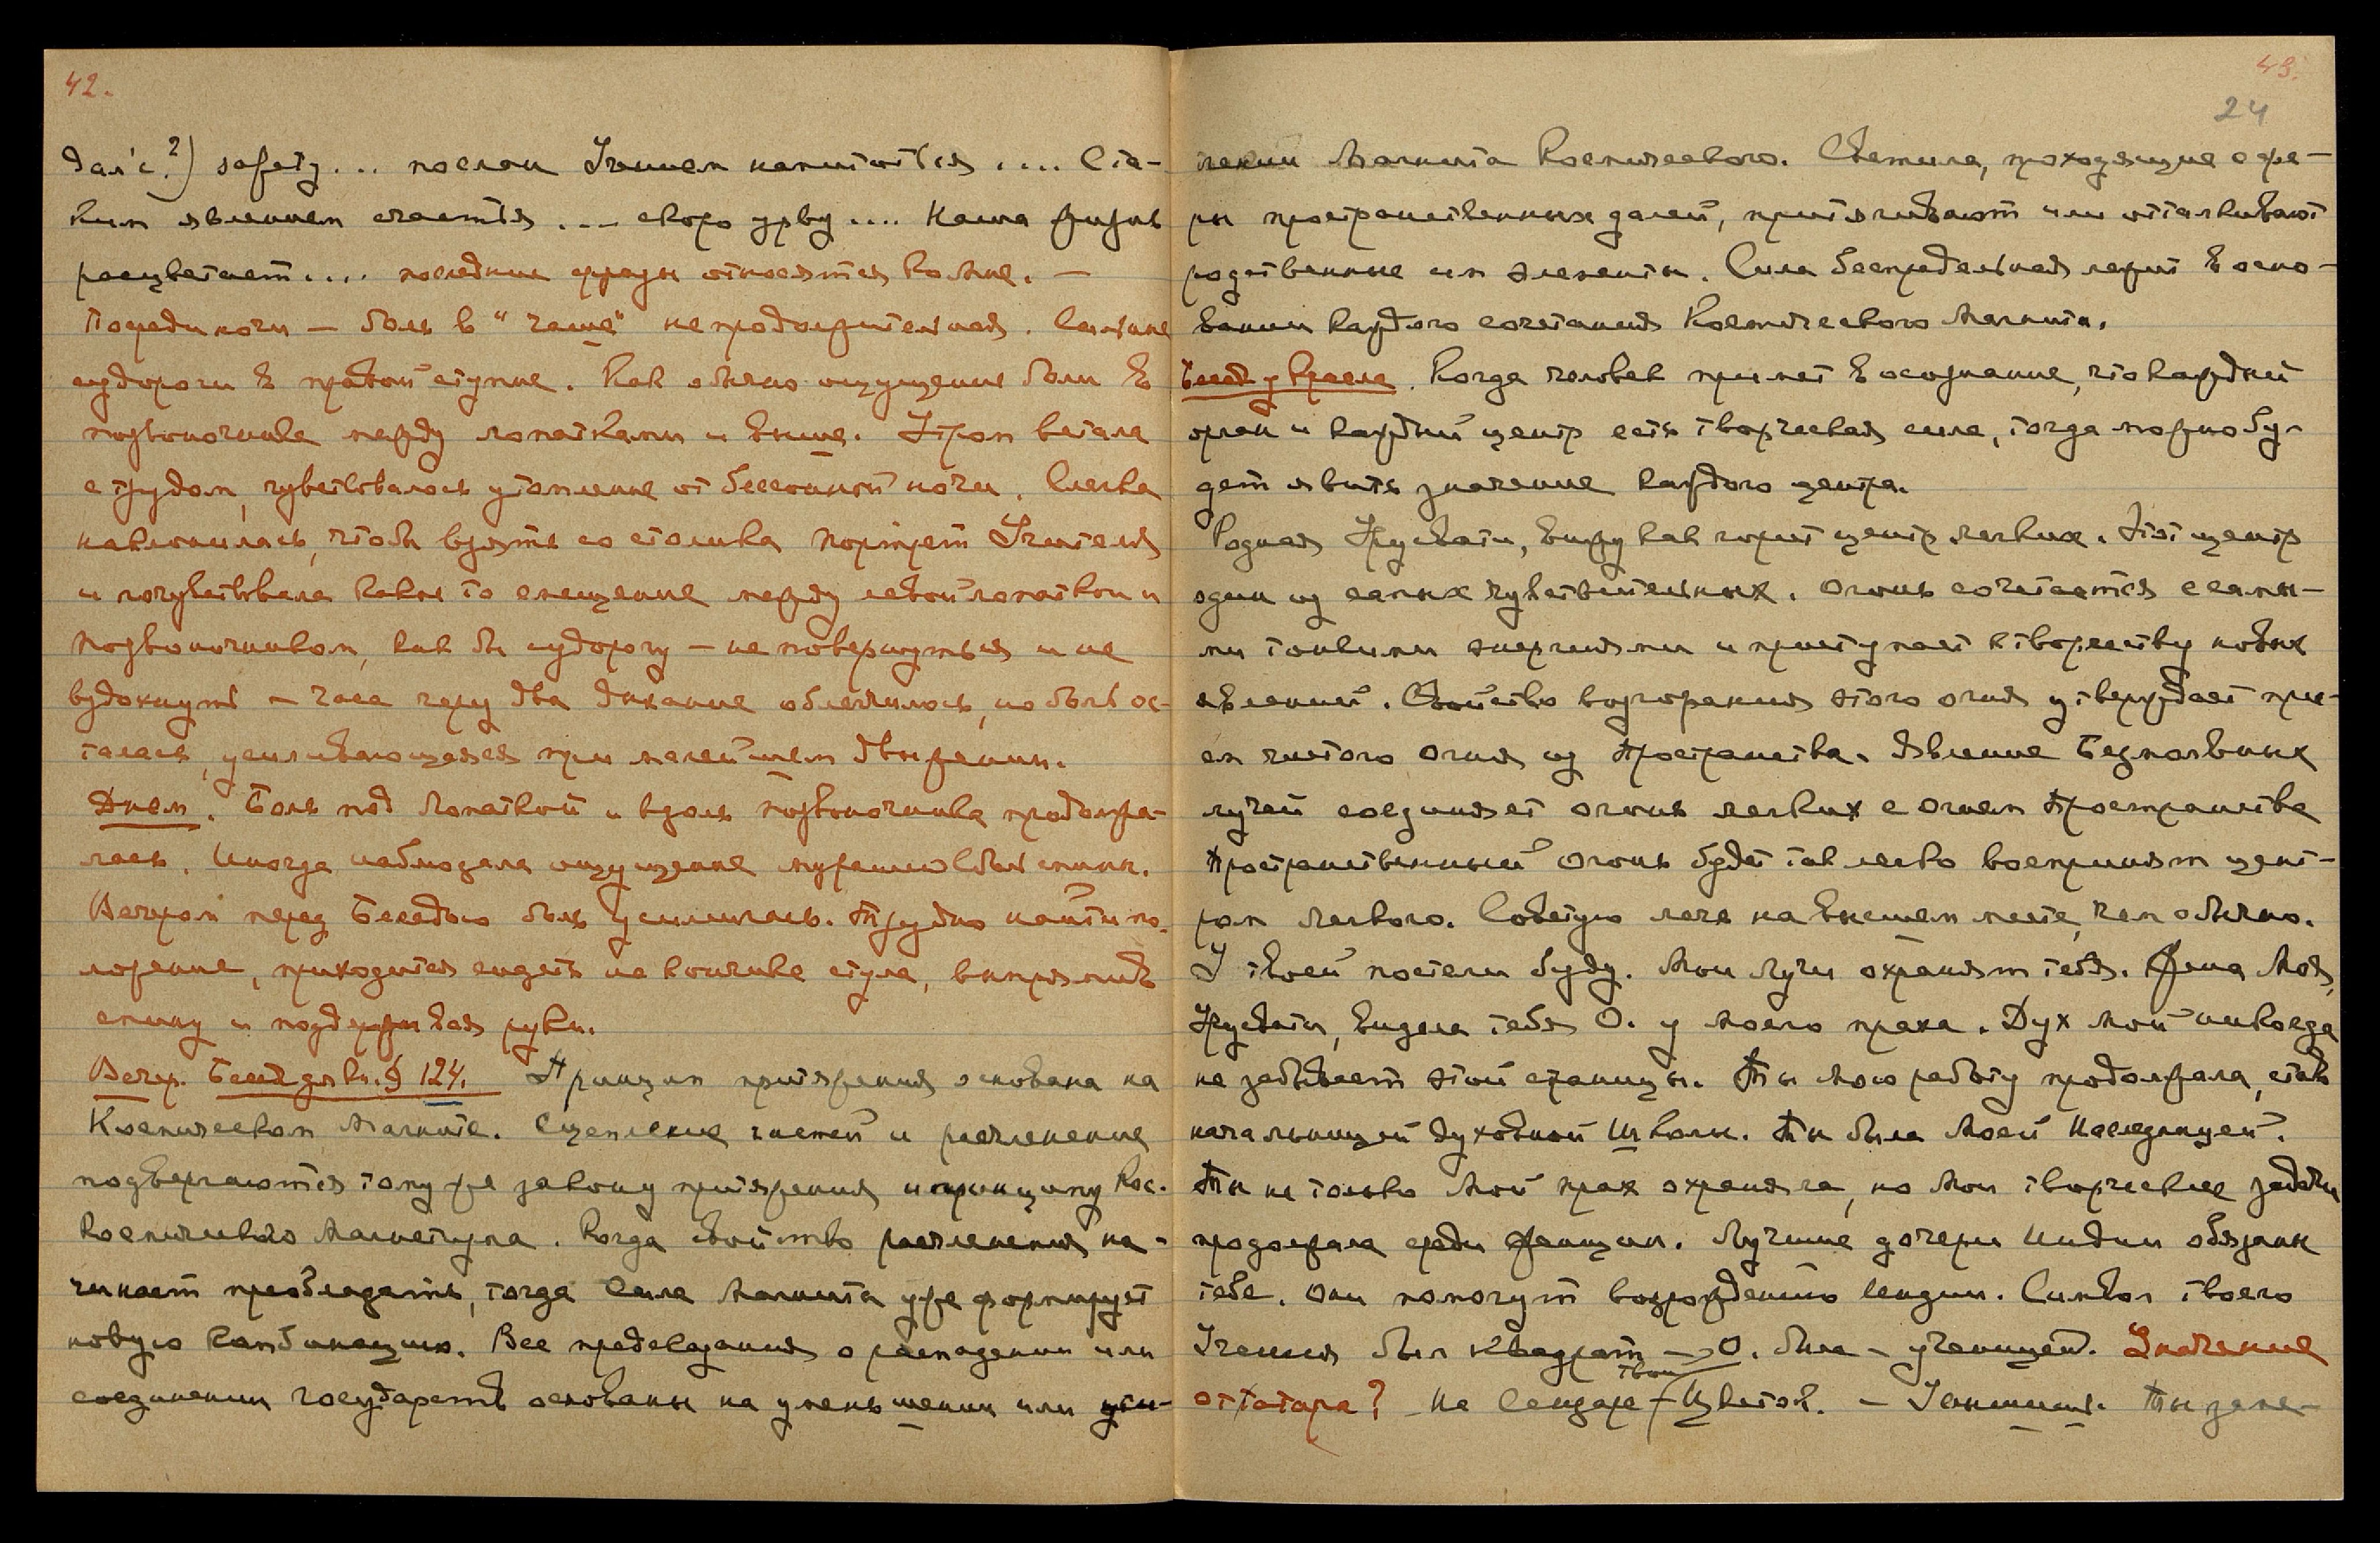 42.
дал'с?) safety... послан Учением напитаться .... Ста-
ким явлением счастья ... скоро узрву .... Наша жизнь
расцветает.... последние фразы относятся ко мне. —
Посреди ночи — боль в "чаше" непродолжительная. Сильные
судороги в правой ступне. Как обычно ощущение боли в
позвоночнике между лопатками и выше. Утром встала
с трудом, чувствовалось утомление от бессонной ночи. Слегка
наклонилась, чтобы взять со столика портрет Учителя
и почувствовала какое то смещение между левой лопаткой и
позвоночником, как бы судорогу — не повернуться и не
вздохнуть — часа через два дыхание облегчилось, но боль ос-
талась, усиливающаяся при малейшем движении.
Днем. Боль под лопаткой и вдоль позвоночника продолжа-
лась. Иногда наблюдала ощущение мурашек вдоль спины.
Вечером перед Беседою боль усилилась. Трудно найти по-
ложение, приходится сидеть на кончике стула, выпрямив
спину и поддерживая руки.
Вечер. Бесед. для кн. § 124. Принцип притяжения основан на
Космическом Магните. Сцепление частей и расчленение
подвергаются тому же закону притяжения и принципу Кос.
Космического Магнетизма. Когда свойство расчленения на-
чинает преобладать, тогда Сила Магнита уже формирует
новую комбинацию. Все предсказания о распадении или
соединении государств основаны на уменьшении или уси-
43.
24
лении Магнита Космического. Светила, проходящие сфе-
ры пространственных далей, притягивают или отталкивают
родственные им элементы. Сила беспредельная лежит в осно-
вании каждого сочетания Космического Магнита.
Бесед. у Кресла. Когда человек примет в осознание, что каждый
орган и каждый центр есть творческая сила, тогда можно бу-
дет явить значение каждого центра.
Родная Урусвати, вижу как горит центр легких. Этот центр
один из самых чувствительных. Огонь сочетается с самы-
ми тонкими энергиями и приступает к творчеству новых
явлений. Свойство возгорания этого огня утверждает при-
ем чистого Огня из Пространства. Явление Безмолвных
лучей соединяет огонь легких с Огнем Пространства
Пространственный Огонь будет так легко воспринят цент-
ром легкого. Советую лечь на высшем месте, чем обычно.
У твоей постели буду. Мои Лучи охранят тебя. Жена Моя,
Урусвати, видела тебя О. у Моего праха. Дух Мой никогда
не забывает этой страницы. Ты Мою работу продолжала, став
начальницей духовной Школы. Ты была Моей Наследницей.
Ты не только Мой прах охраняла, но Мои творческие задачи
продолжала среди женщин. Лучшие дочери Индии обязаны
тебе. Они помогут возрождению Индии. Символ твоего
Учения был квадрат — О. была — ученицей. Значение
от Татара? На Сендаре — Твой Цветок. — Услышишь. Ты зале-